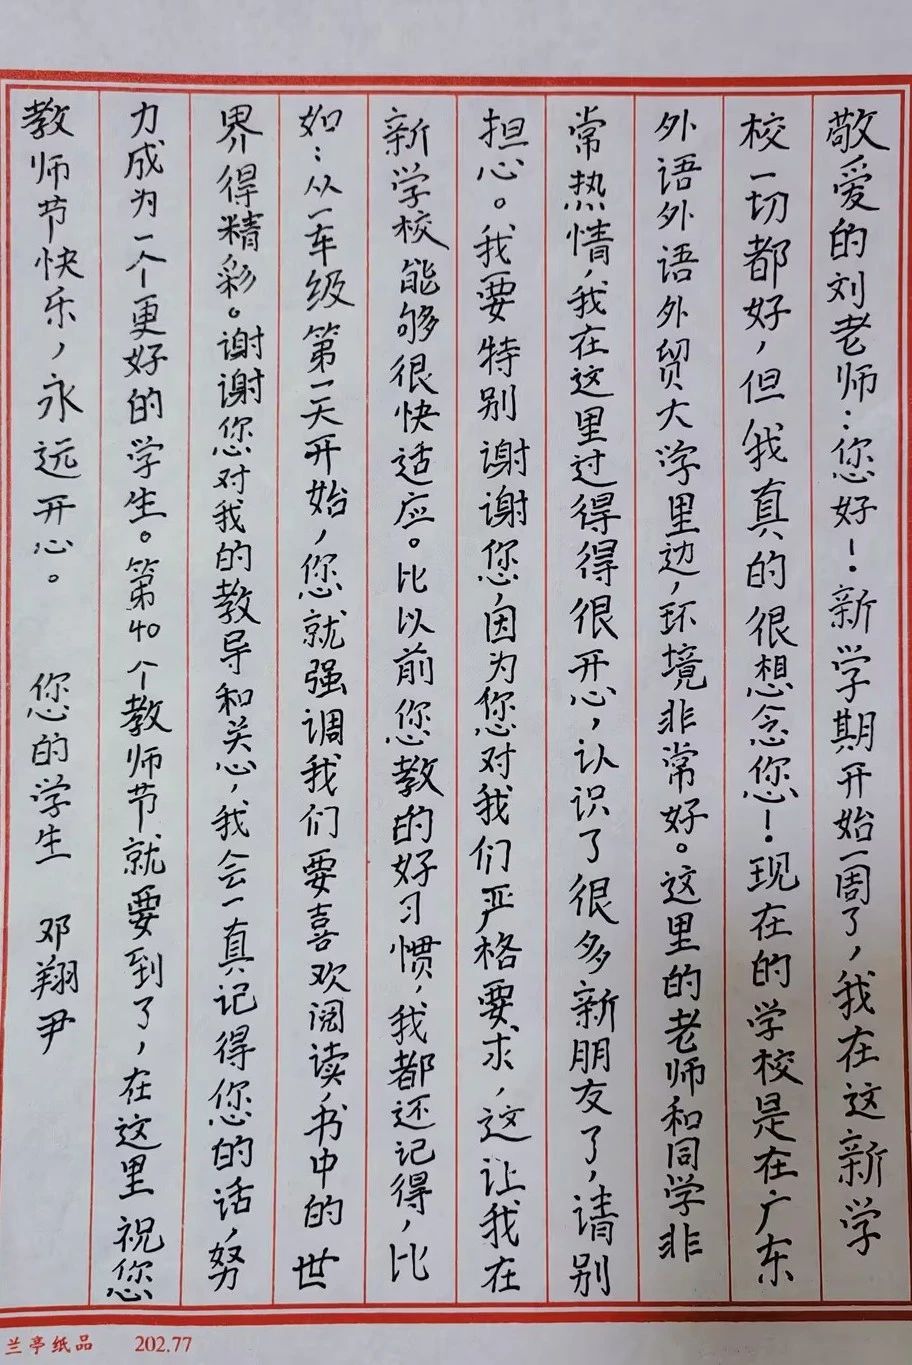 敬爱的刘老师：您好！新学期开始一周了，我在这新学
校一切都好，但我真的很想念您！现在的学校是在广东
外语外语外贸大学里边，环境非常好。这里的老师和同学非
常热情，我在这里过得得很开心，认识了很多新朋友了，请别
担心。我要特别谢谢您，因为您对我们严格要求，这让我在
新学校能够很快适应。比以前您教的好习惯，我都还记得，比
如：从一年级第一天开始，您就强调我们要喜欢阅读，书中的世
界得精彩。谢谢您对我的教导和关心，我会一真记得您的话，努
力成为一个更好的学生。第40个教师节就要到了，在这里祝您
教师节快乐，永远开心。 您的学生 邓翔尹
兰亭纸品 202.77